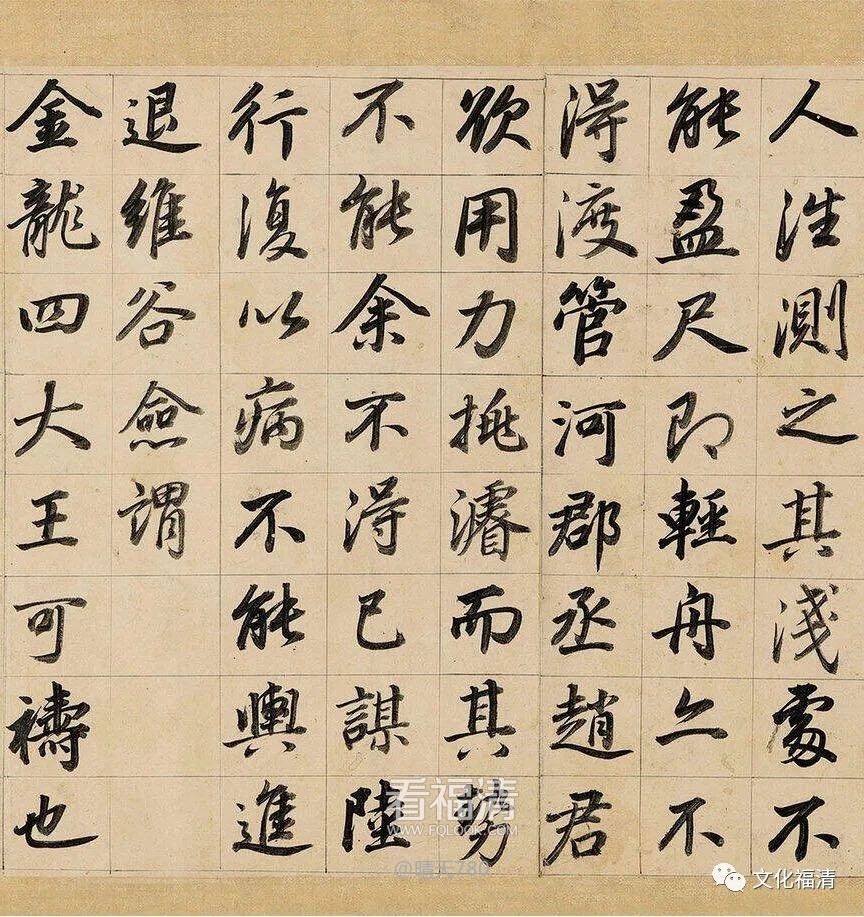 人往測之其淺處不
能盈尺即輕舟亦不
得渡管河郡丞趙君
欲用力挑濬而其勢
不能余不得已謀陸
行復以病不能輿進
退維谷僉謂
金龍四大王可禱也
看福清
WWW.FQLOOK.COM
文化福清